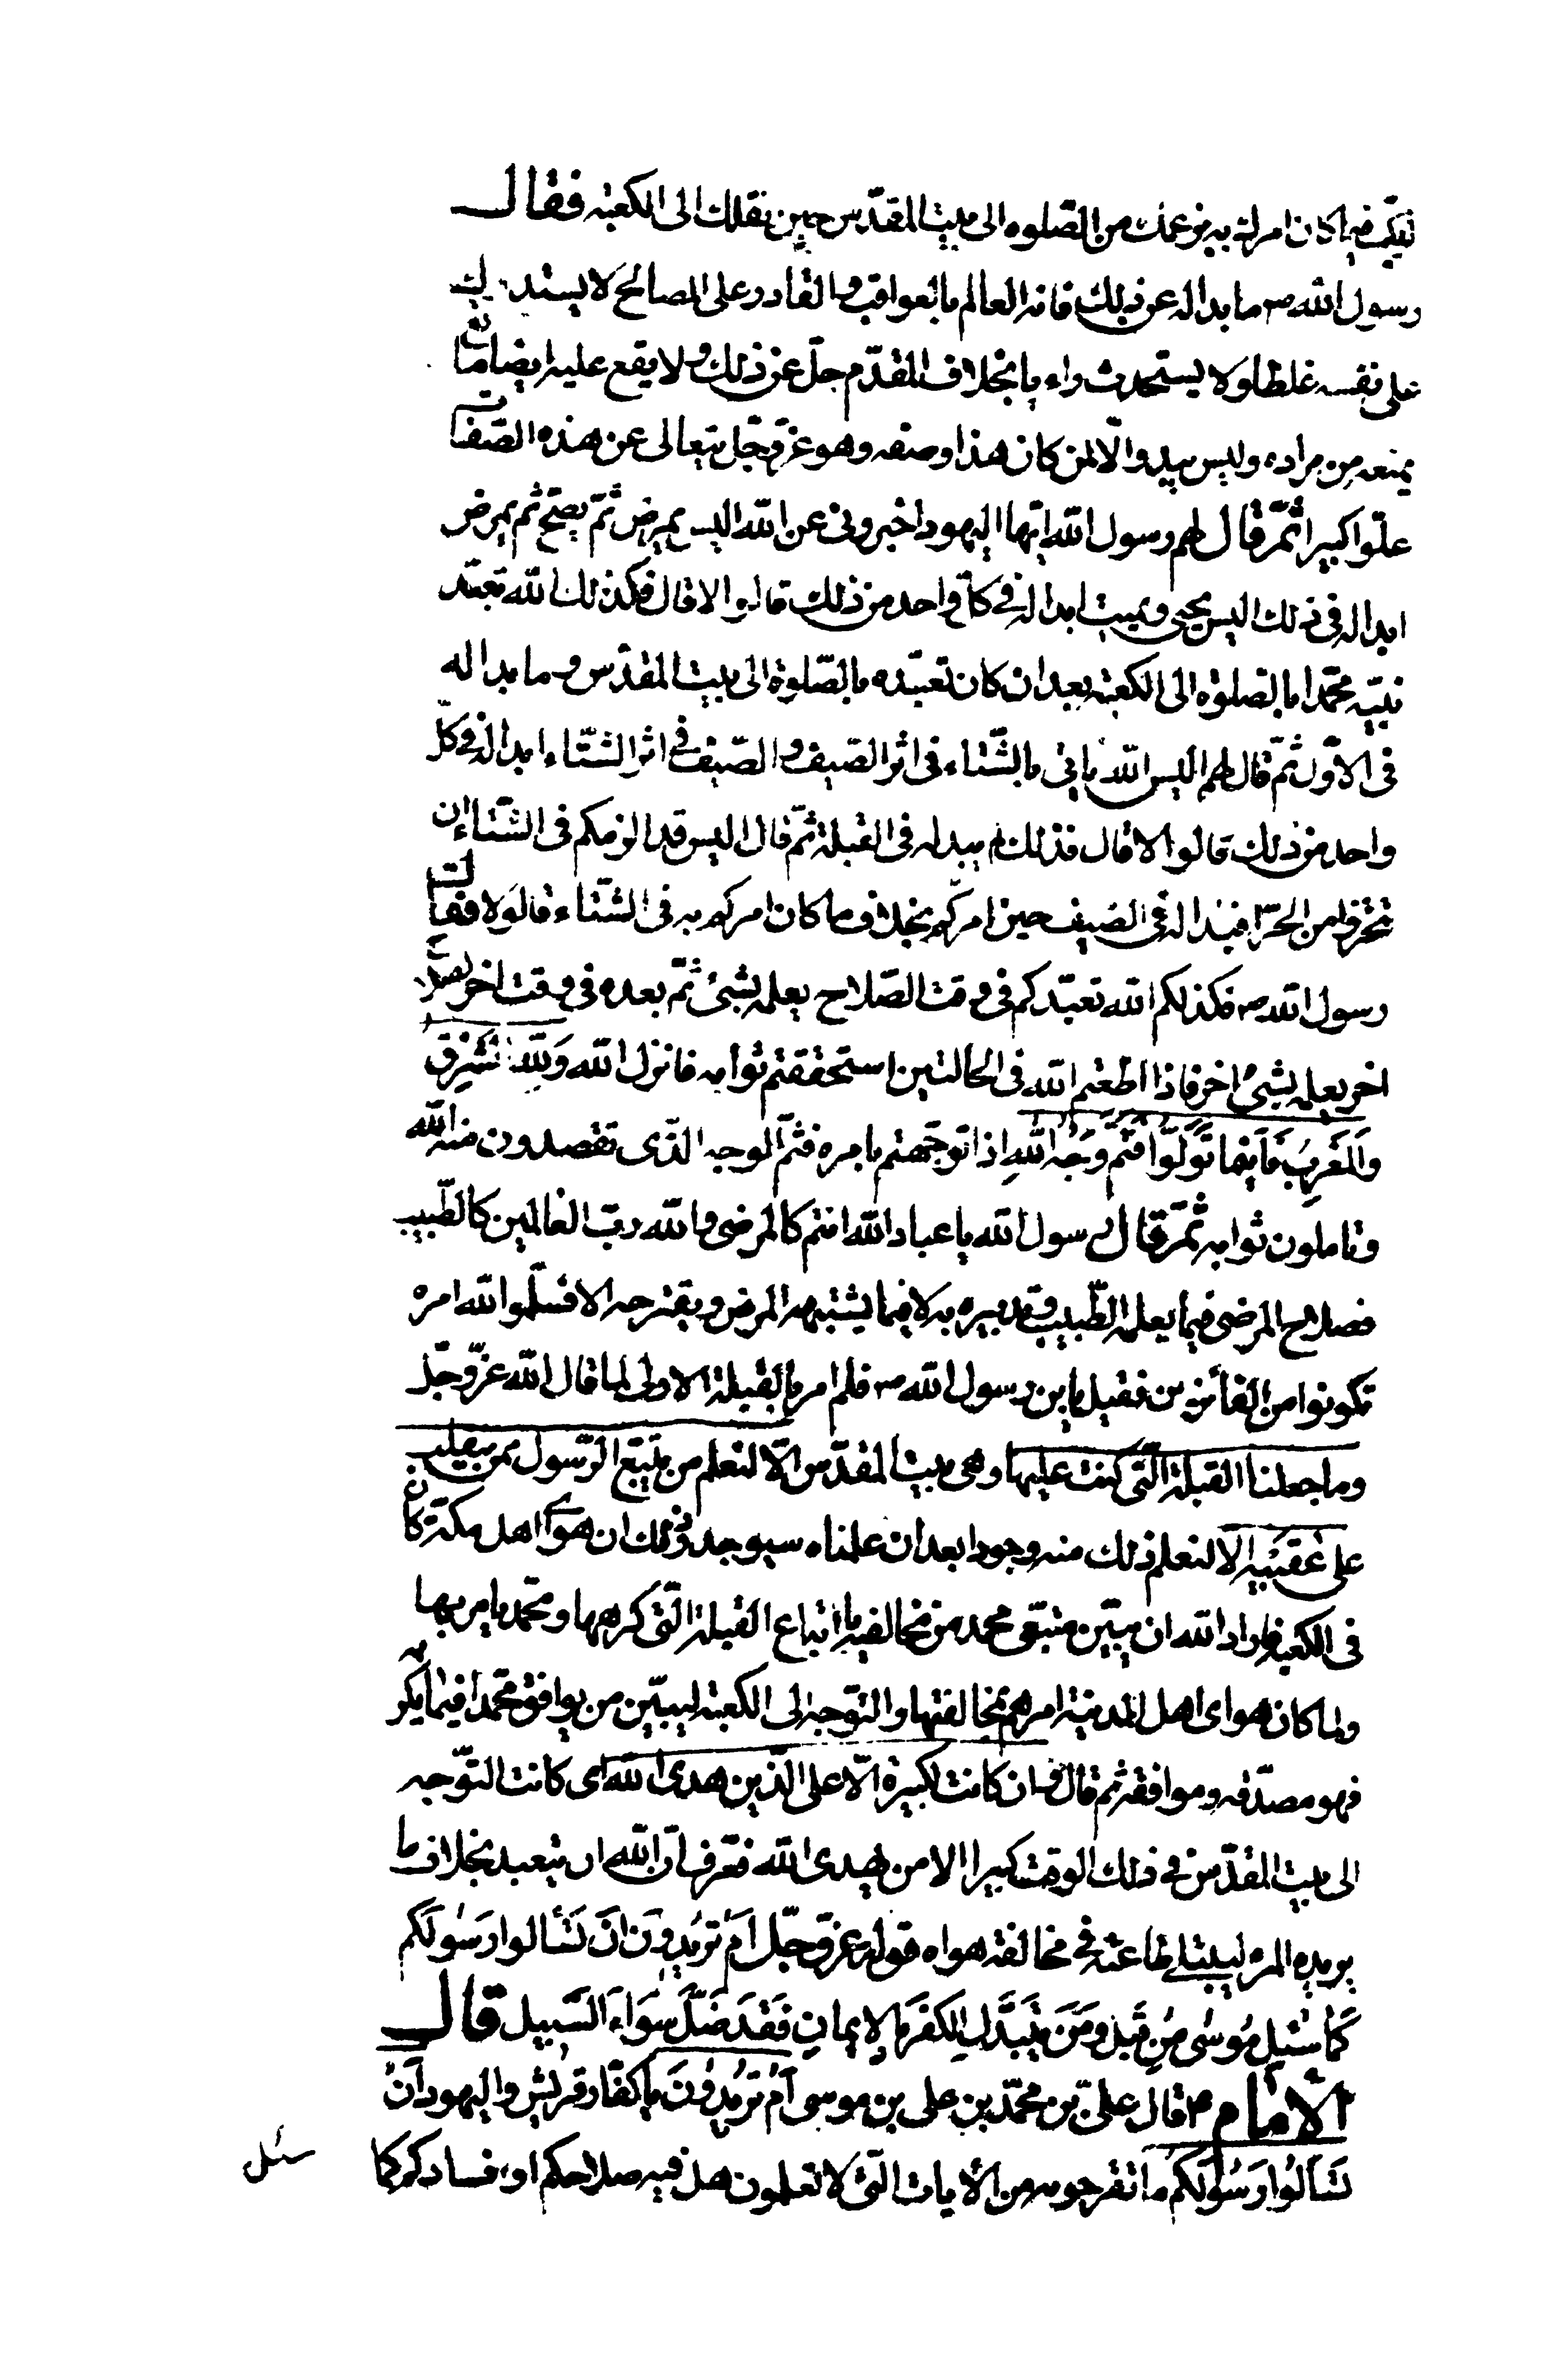 فيما كان امرك به بزعمك من الصلوه الى بيت المقدّس حين نقلك الى الكعبة فقال
رسول الله ص ما بدا له عن ذلك فانه العالم بالعواقب والقادر على المصالح لا يستدرك
على نفسه غلطا ولا يستحدث راء يا بخلاف المقدّم جلّ عن ذلك ولا يقع عليه ايضا مانع
يمنعه من مراده وليس يبدوا الّا لمن كان هذا وصفه وهو عزّ وجّل يتعالى عن هذه الصّفات
علوّا كبيرا ثمّ قال لهم رسول الله ايّها اليهود اخبرونى عن الله اليس يمرض ثمّ يصحّ ثم يمرض
ابدا له فى ذلك اليس يحيى ويميت ابدا له فى كلّ واحد من ذلك قالوا لا قال فكذلك الله تعبّد
نبيّه محمّدا بالصلوة الى الكعبة بعد ان كان تعبّده بالصّلوة الى بيت المقدّس وما بدا له
فى الاوّل ثمّ قال لهم اليس الله ياتى بالشّتاء فى اثر الصّيف والصّيف فى اثر الشّتاء ابدا له فى كلّ
واحد من ذلك قالوا لا قال فذلك لم يبد له فى القبلة ثمّ قال اليس قد الزمكم فى الشّتاء ان
تحترفوا من الحرّ افبدا له فى الصّيف حين امركم بخلاف ما كان امركم به فى الشّتاء قالو لا فقال
رسول الله ص فكذلكم الله تعبّدكم فى وقت الصّلاح يعلمه بشئ ثمّ بعده فى وقت اخر لصلاح
اخر يعلمه بشئ اخر فاذا اطعتم الله فى الحالتين استحققتم ثوابه فانزل الله وَلِلّهِ المَشْرِقُ
وَالْمَغْرِبُ فَاَينَما تُوَلّوُا فَثَمَّ وَجْهُ اللهِ اذا توجّهتم بامره فثمّ الوجه الذّى تقصدون منه الله
وتاملون ثوابه ثمّ قال رسول الله يا عباد الله انتم كالمرضى والله ربّ العالمين كالطّبيب
فصلاح المرضى فيما يعلمه الطّبيب وتدبيره به لا فيما يشتهيه المرض ويقترحه الا فسلّموا لله امره
تكونوا من الفائزين فقيل يابن رسول الله ص فلم امر بالقبلة الاولى لما قال الله عزّ وجّل
وما جعلنا القبلة الّتى كنت عليها وهى بيت المقدّس الّا لنعلم من يتّبع الرّسول ممن ينقلب
على عَقِبَيْهِ الّا لنعلم ذلك منه وجودا بعد ان علمناه سيوجد وذلك ان هوى اهل مكّة كان
فى الكعبة فاراد الله ان يبيّن متبعّى محمد من مخالفيه باتباع القبلة الّتى كرهها ومحمد يامر بها
ولما كان هواى اهل المدنية امرهم بمخالفتها والتوّجه الى الكعبة ليبيّن من يوافق محمّدا فيما يكرهه
فهو مصدّقه وموافقه ثم قال وان كانت لكبيرة الّا على الّذين هدى الله اى كانت التوّجه
الى بيت المقدّس فى ذلك الوقت كبيرا الا من يهدى الله فعرف انّ الله ان يتعبد بخلاف ما
يريده المرء ليبتلى طاعته فى مخالفة هواه قوله عزّ وجّل اَمْ تُريدُونَ اَنْ تَسْأَلوا رَسُولَكُم
كَمْا سُئِلَ مُوسٰى مِن قَبلُ وَمَنْ يَتَبَدَّلِ الكُفرَ بِالإيمانِ فَقَد ضَلَّ سَوٰاءَ السَبيل قال
الاْمام ع قال علىّ بن محمّد بن على بن موسى اَمْ تُريدُونَ يا كفّار قريش واليهود اَنْ
تَسْأَلُوا رَسُولَكُمْ ما تقترحونه من الأيات الّتى لا تعلمون هل فيه صلاحكم او فسادكم كما
سئل